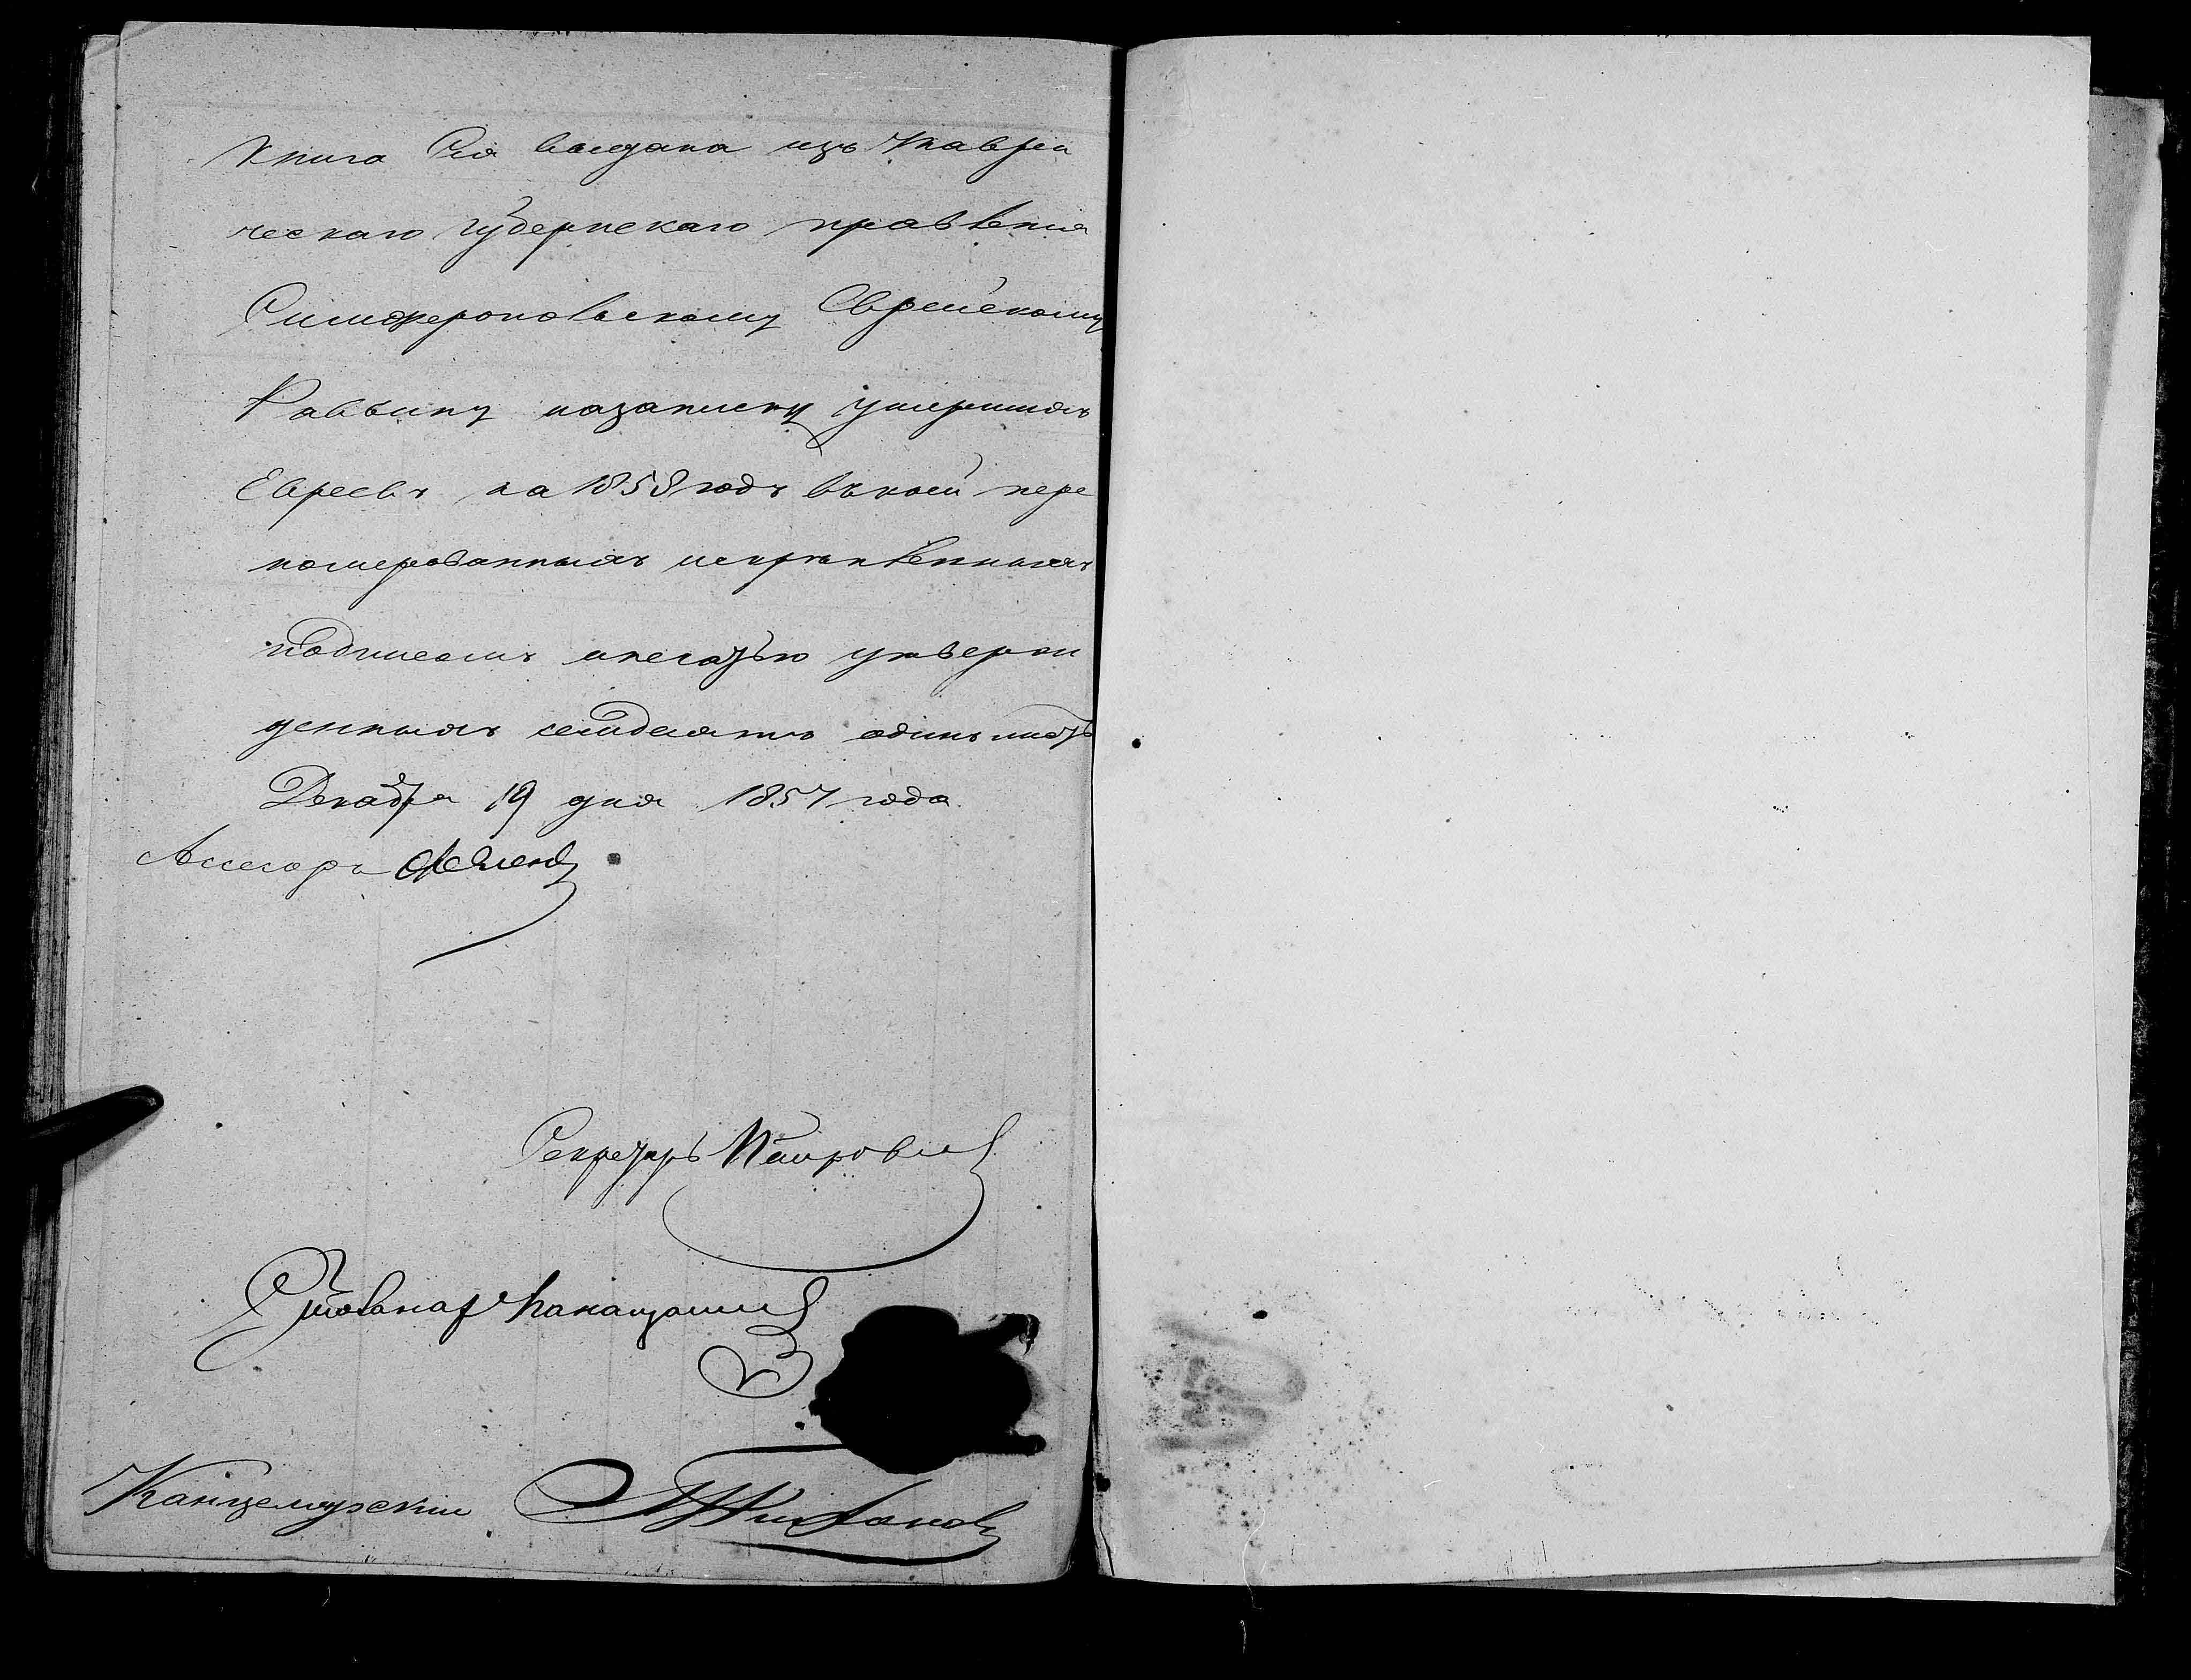 Книга Сія выдана изъ Таври
ческаго Губернскаго правленія
Симферопольскому Еврейскому
Раввину на записку умершихъ
Евреевъ на 1858 годъ въ коей пере
номерованныхъ искрепленныхъ
подписомъ ипечатью утверж
денныхъ семдесятъ одинъ листъ
Декабря 19 дня 1857 года.
Ассесоръ
Секретарь
Столонач
Канцелярскій